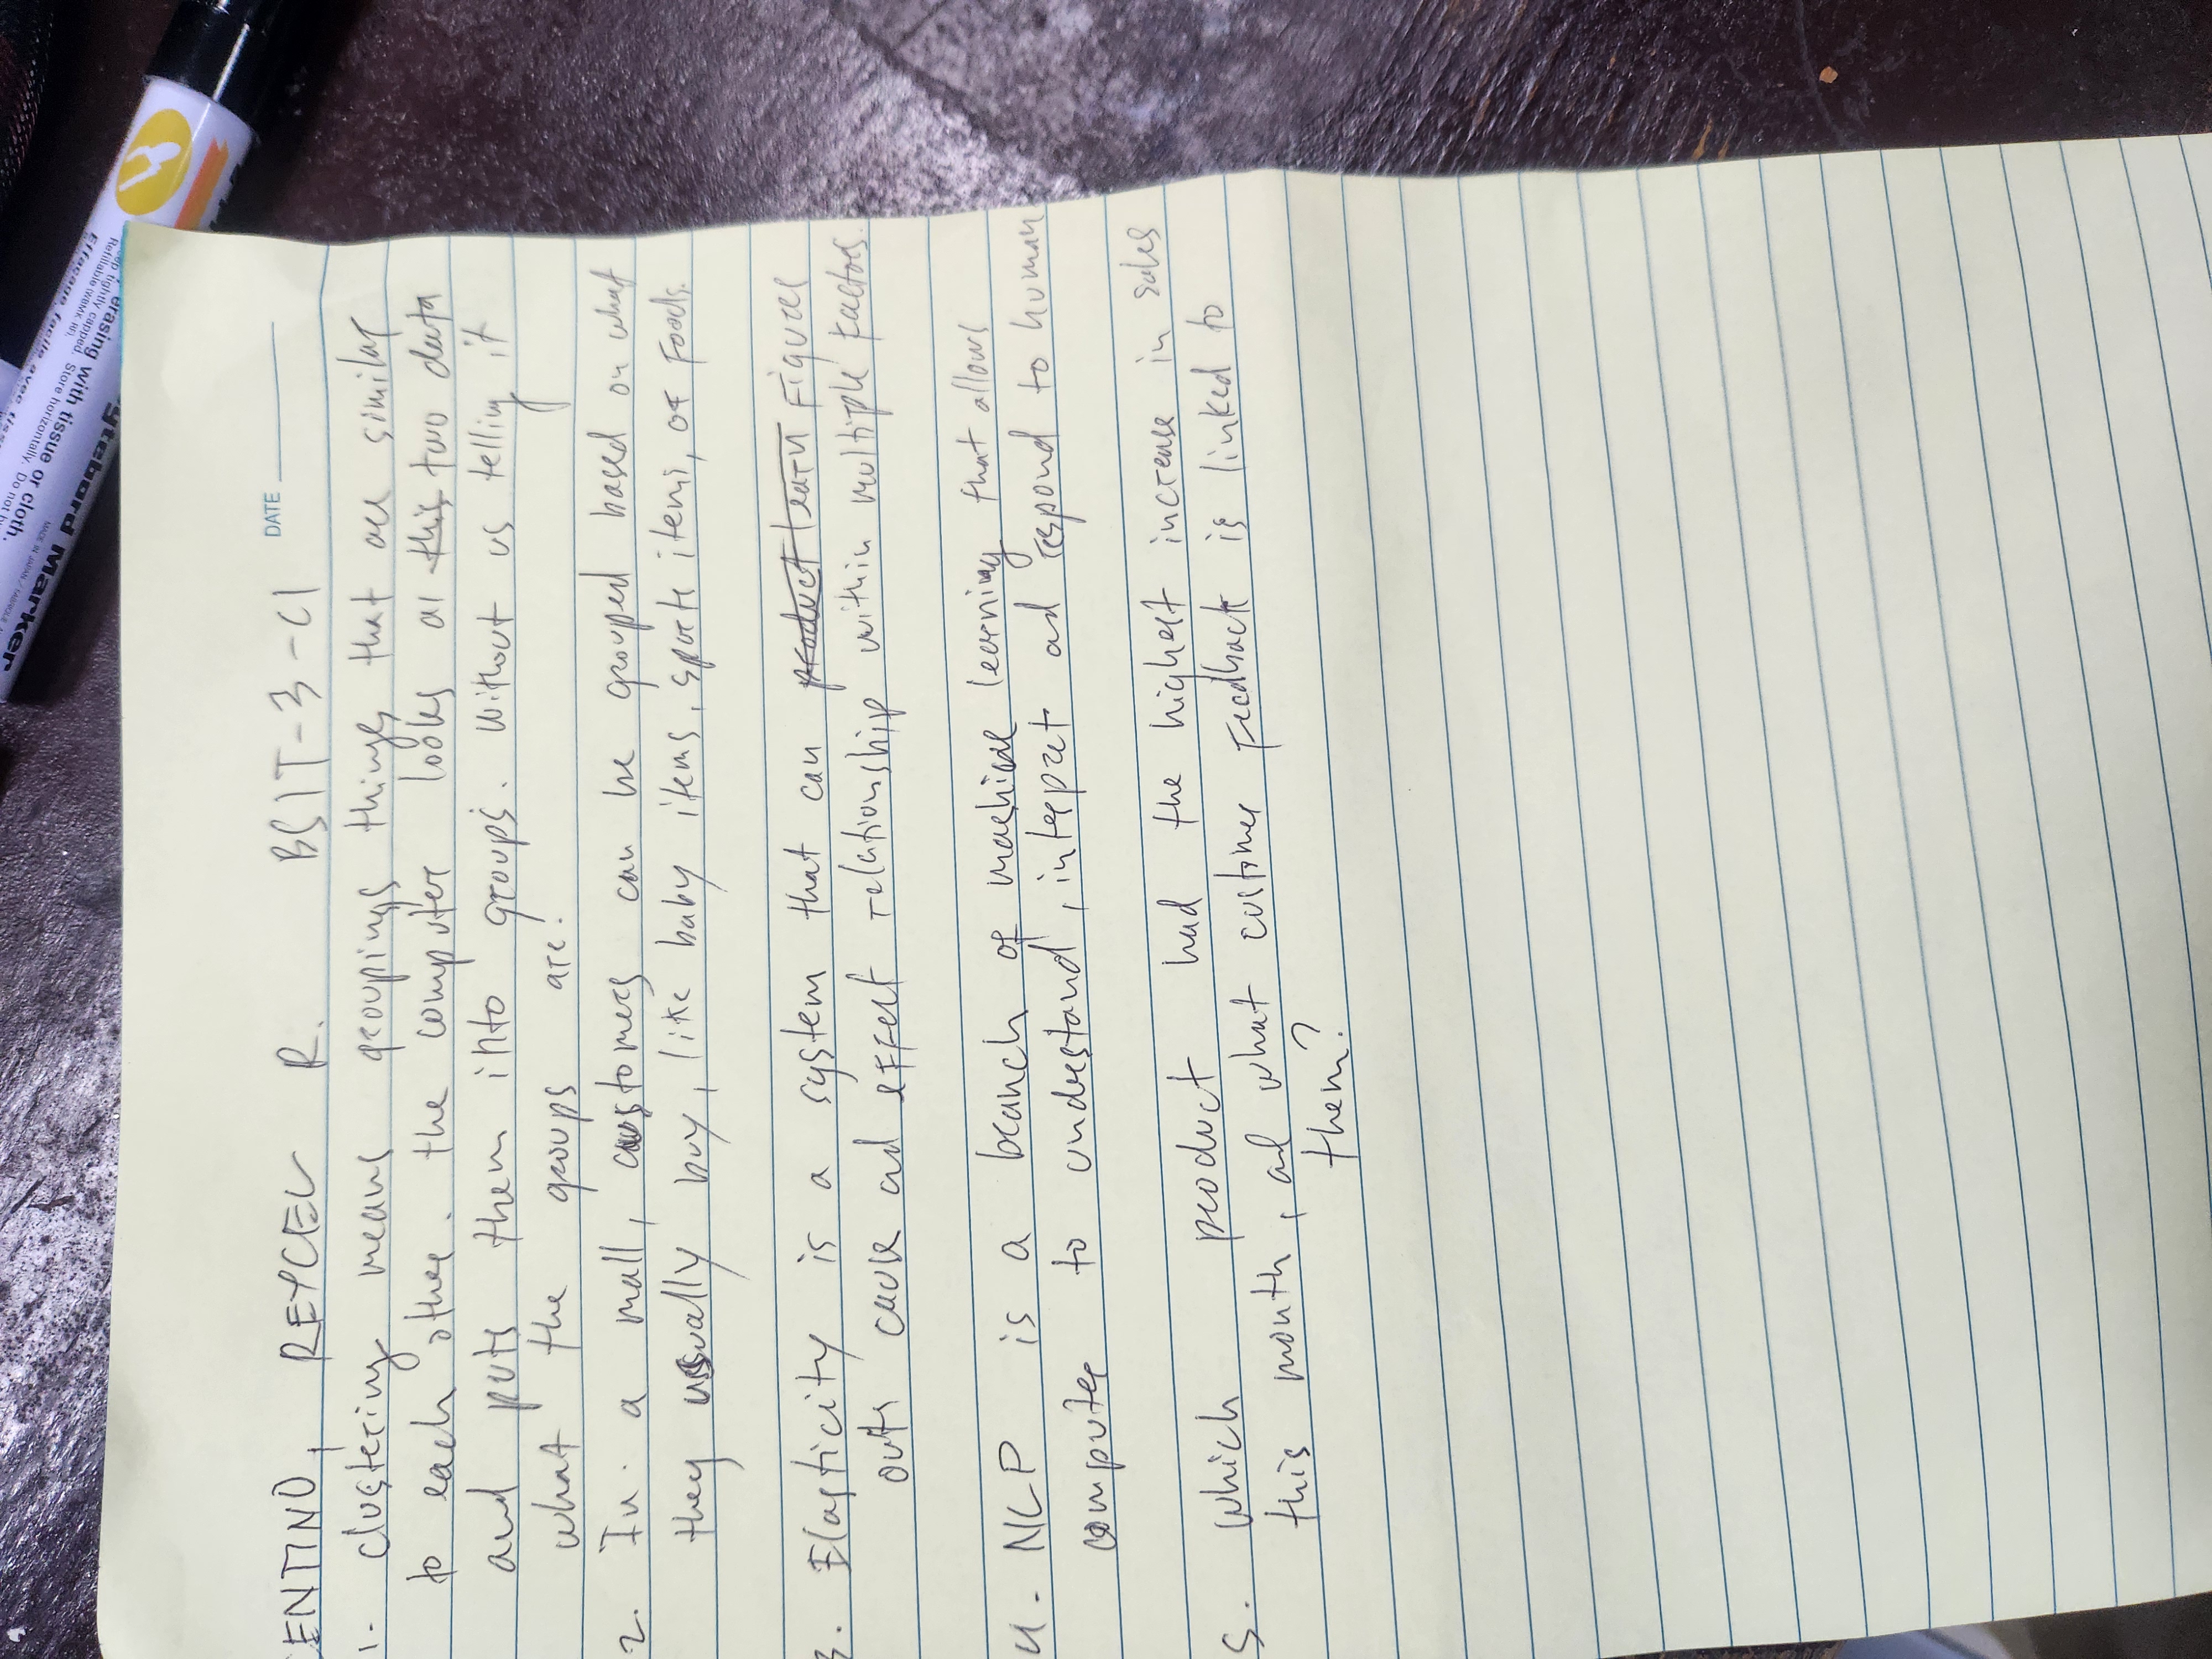 yteboard Marker
MADE IN JAPAN
erasing with tissue or cloth.
tightly capped. Store horizontally. Do not
Refillable (WBMK RF).
Effaçage facile avec tissu
DATE
ENTINO, REYCEL R. BSIT-3-C1
1. clustering means groupings things that are similar
to each other. the computer looks at this two data
and puts them into groups. Without us telling it
what the groups are.
2. In a mall, customers can be grouped based on what
they usually buy, like baby items, sports items, or Foods.
3. Elasticity is a system that can product learn Figures
outs cause ad effect relationship within multiple Factors.
4. NLP is a branch of machine learning that allows
computer to understand, interpret ad respond to human
5. Which product had the highest increase in sales
this month, ad what customer Feedback is linked to
them?